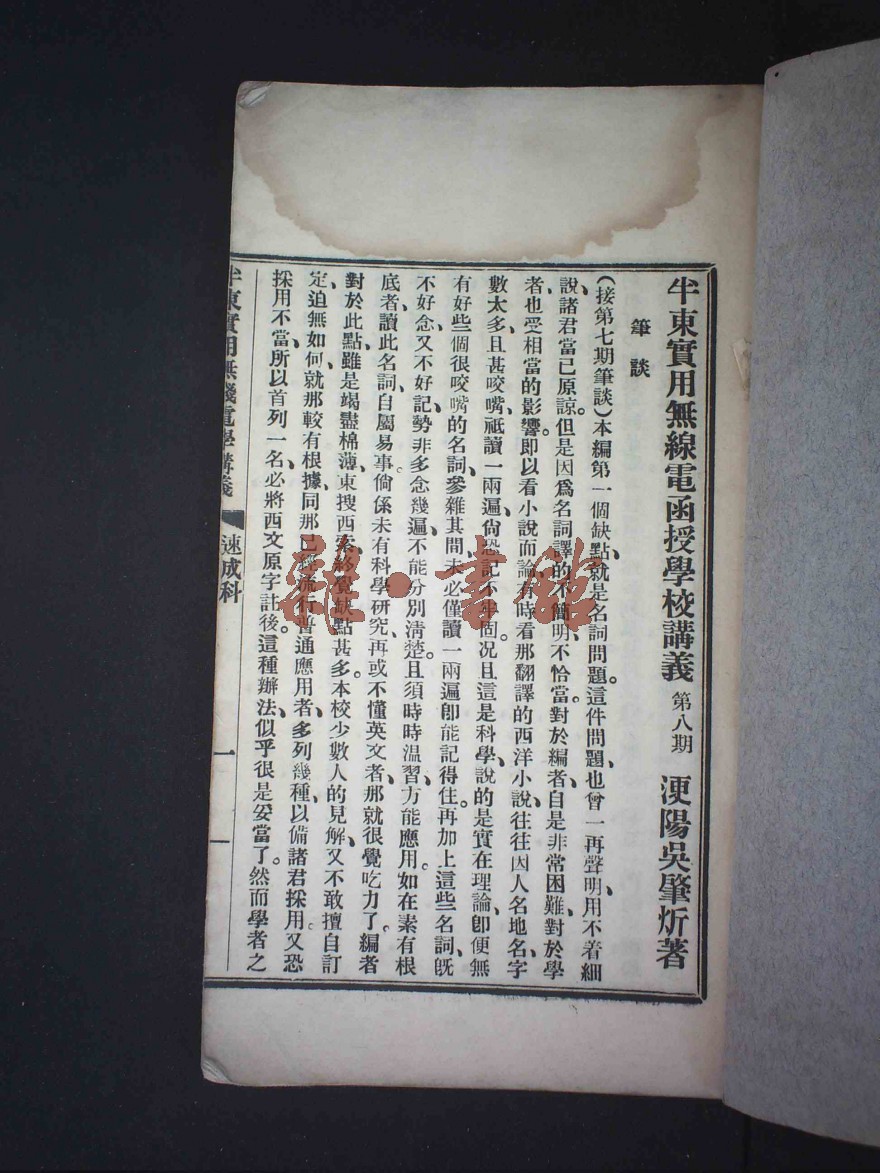 半東實用無線電函授學校講義 第八期 浭陽吳肇炘著
筆談
(接第七期筆談)本編第一個缺點、就是名詞問題。這件問題、也曾一再聲明、用不着細
說、諸君當已原諒。但是因爲名詞譯的不簡明、不恰當。對於編者、自是非常困難、對於學
者、也受相當的影響。即以看小說而論、有時看那翻譯的西洋小說、往往因人名地名、字
數太多、且甚咬嘴、祗讀一兩遍、尙恐記不牢固。况且這是科學、說的是實在理論、卽便無
有好些個很咬嘴的名詞、參雜其間、未必僅讀一兩遍、卽能記得住。再加上這些名詞、旣
不好念、又不好記、勢非多念幾遍、不能分別清楚。且須時時温習、方能應用。如在素有根
底者、讀此名詞、自屬易事。倘係未有科學研究、再或不懂英文者、那就很覺吃力了。編者
對於此點、雖是竭盡棉薄、東搜西索、終覺缺點甚多。本校少數人的見解、又不敢擅自訂
定、迫無如何、就那較有根據、同那已經流行、普通應用者、多列幾種、以備諸君採用。又恐
採用不當、所以首列一名、必將西文原字註後。這種辦法、似乎很是妥當了。然而學者之
半東實用無綫電學講義 速成科 一
雜·書館